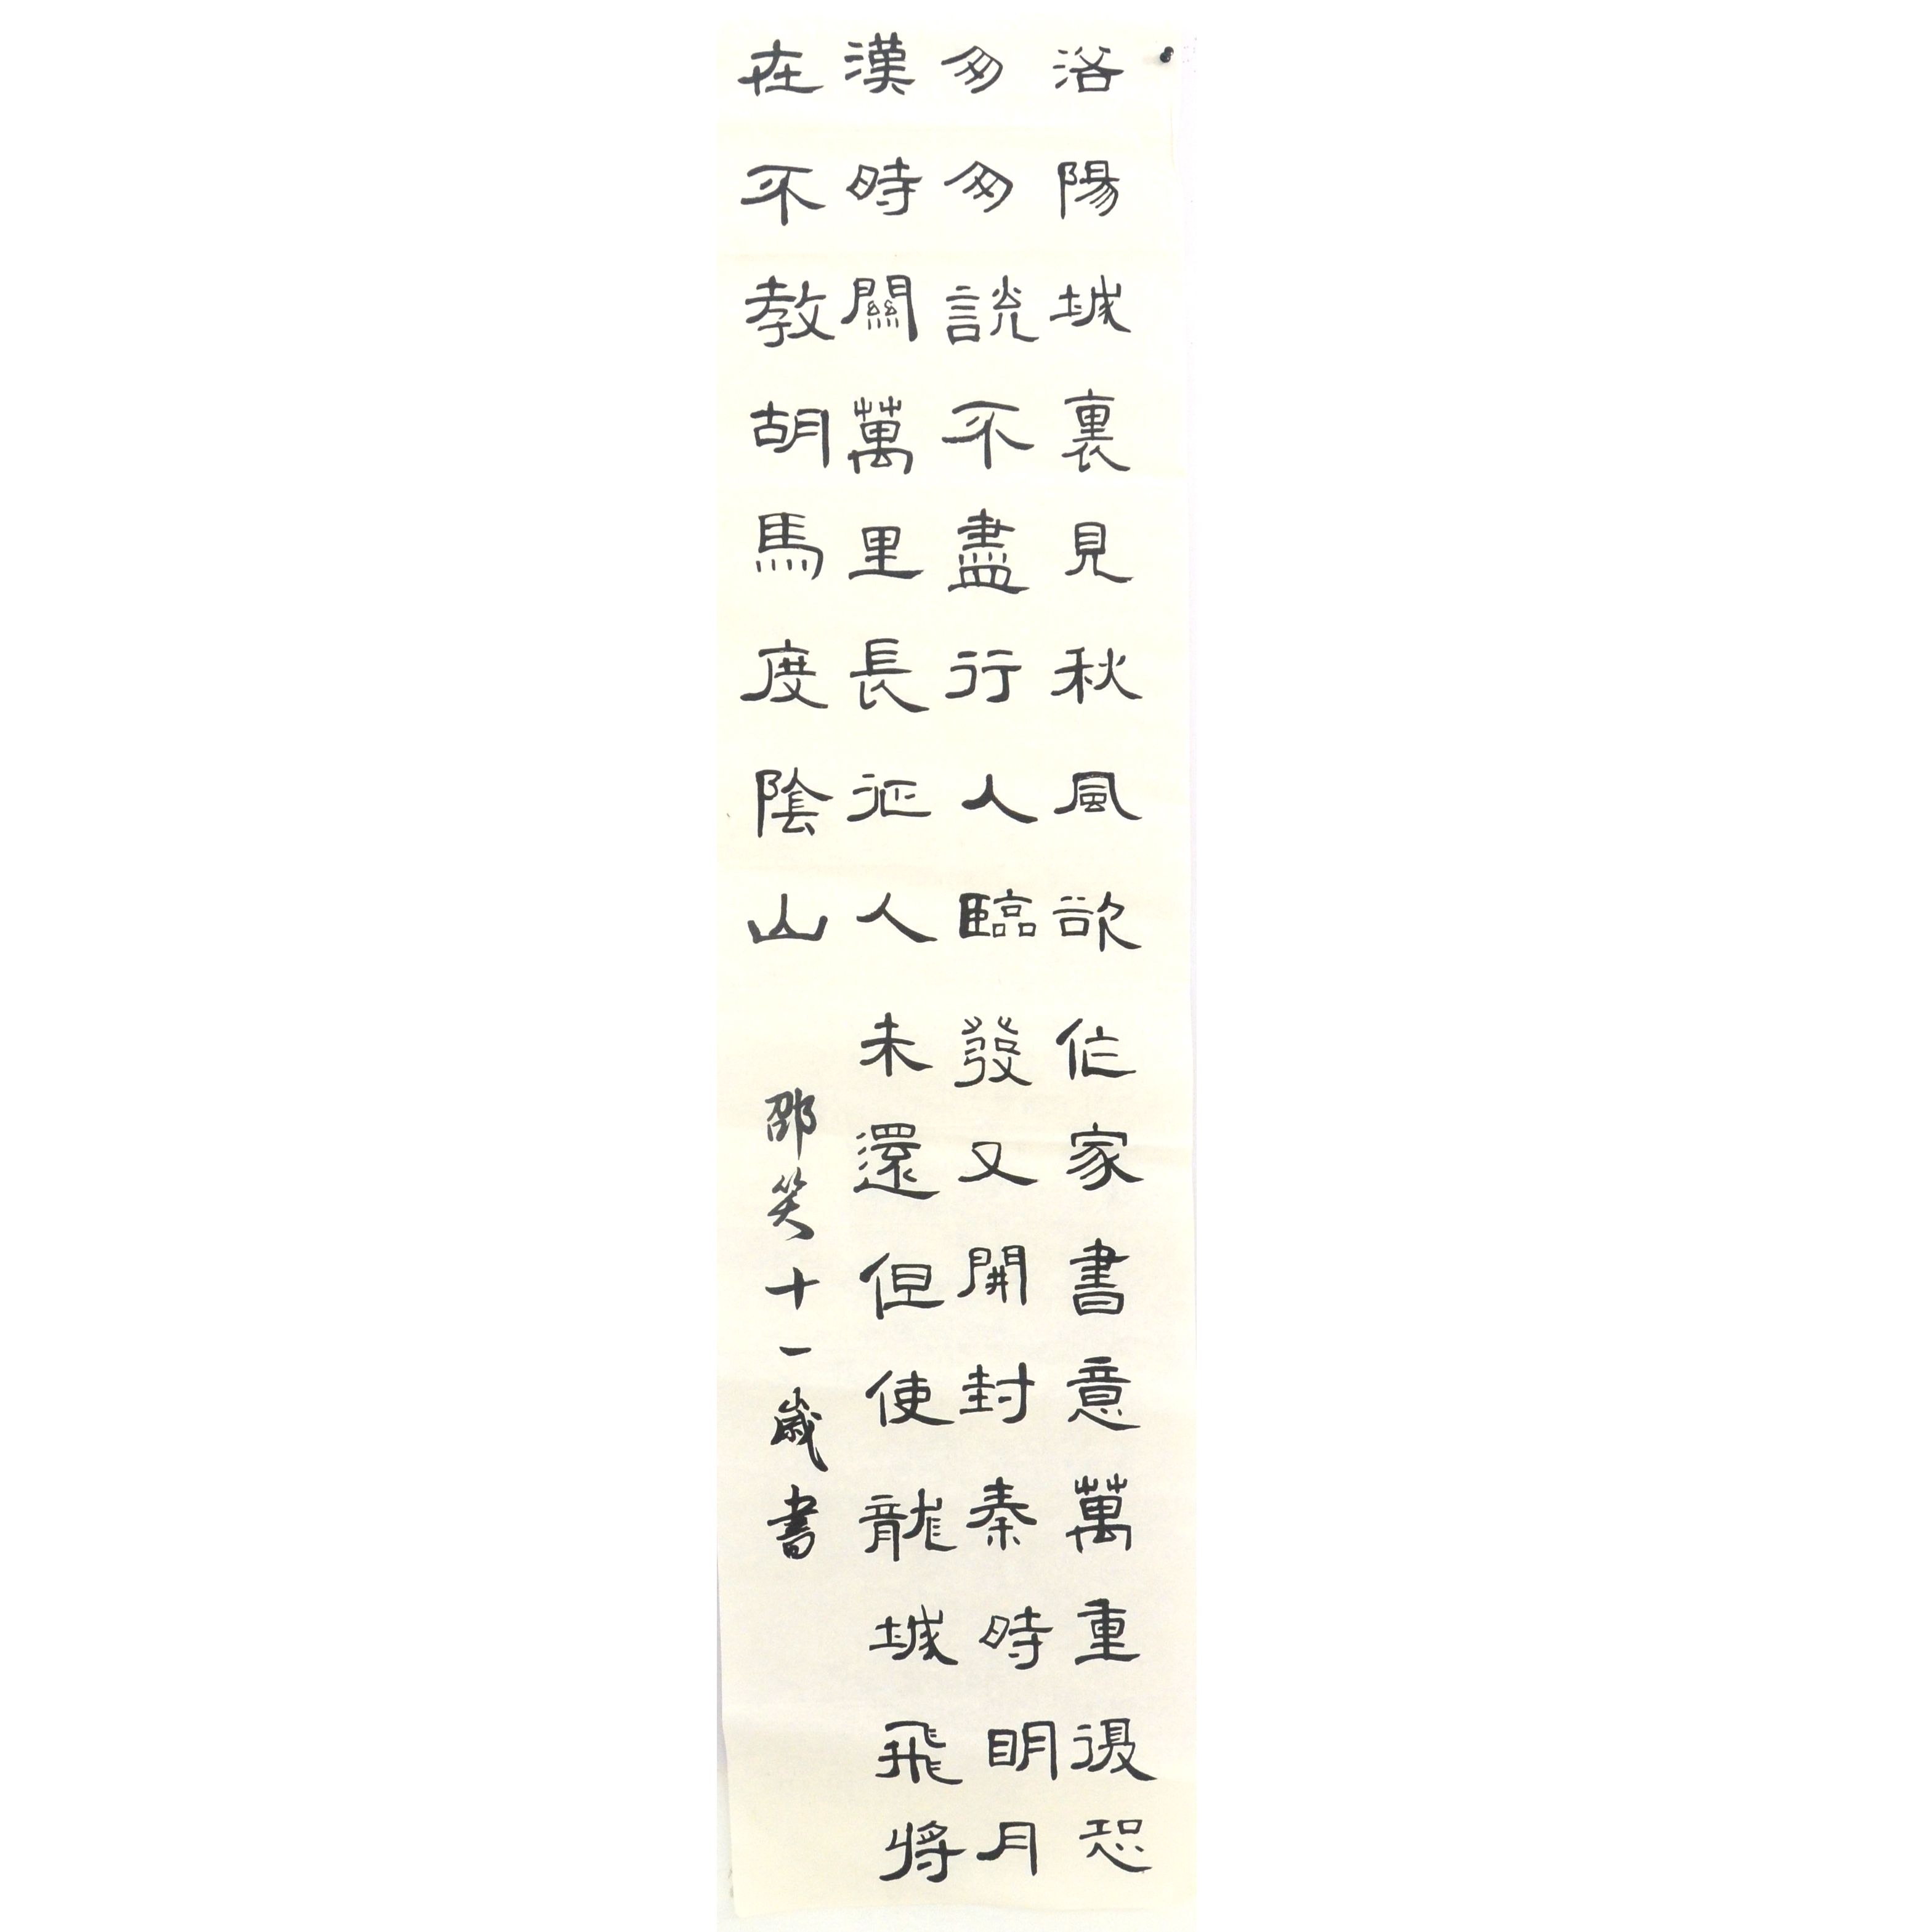 浴陽城裏見秋風欲作家書意萬重復恐
匆匆說不盡行人臨發又開封秦時明月
漢時關萬里長征人未還但使龍城飛將
在不教胡馬度陰山
邵笑十一歲書